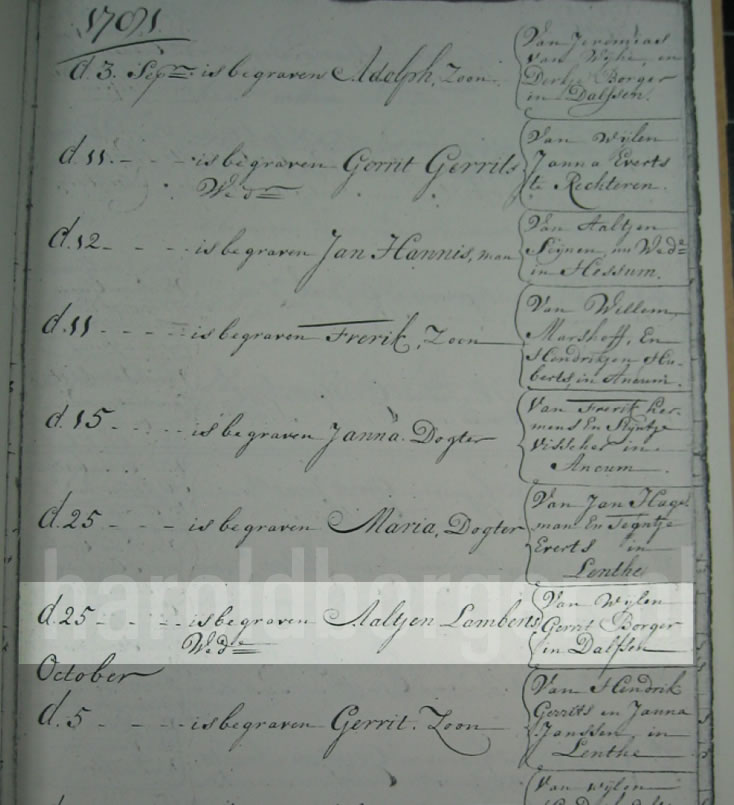 1791
d. 3. Sepr. is begraven Adolph, Zoon
Van Jeremias
van Wijhe, en
Derkje Borger
in Dalfsen.
d. 11. - - - is begraven Gerrit Gerrits
Wedr
Van Wijlen
Janna Everts
te Rechteren.
d. 12 - - - - is begraven Jan Hannis, man
Van Aaltjen
nu Wede
in Hessum.
d. 11 - - - - is begraven Frerik, Zoon
Van Willem
Marshoff, En
Hendrikjen Hu-
berts, in Ancum.
d. 15 - - - - is begraven Janna. Dogter
Van Frerik Her-
mens En Stijntje
Visscher in
Ancum.
d. 25 - - - is begraven Maria, Dogter
Van Jan Hage-
man En
Everts in
Lenthe
haroldborger.nl
d. 25 - - - - is begraven Aaltjen Lamberts
Wede
Van Wijlen
Gerrit Borger
in Dalfsen
October
d. 5 - - - - is begraven Gerrit. Zoon
Van Hendrik
Gerrits en Janna
Janssen, in
Lenthe
Van wijlen